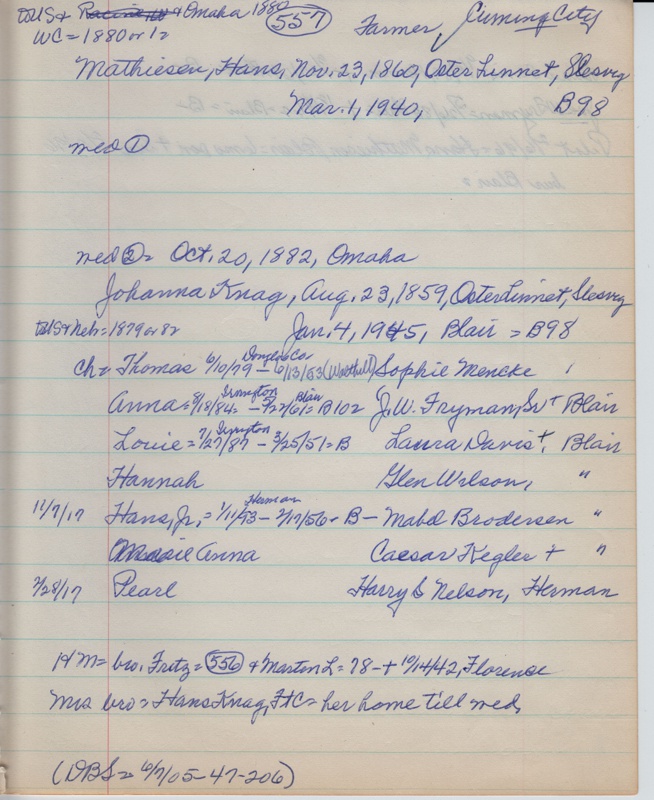 to US & Racine, W & Omaha 1880 (557) Farmer, Cuming City
WC = 1880 or 12
Mathiesen, Hans, Nov. 23, 1860, Oster Linnet, Slesvig
Mar. 1, 1940, B98
med ①
med ② = Oct. 20, 1882, Omaha
Johanna Knag, Aug. 23, 1859, Oster Linnet, Slesvig
to US & Neb = 1879 or 82 Jan. 4, 1945, Blair = B98
ch = Thomas 6/10/79 - Douglas Co 6/13/53 (Walthill) Sophie Mencke
Anna = 8/18/84 = Irvington - 5/22/61 = Blair B102 J.W. Fryman, Sr + Blair
Louie = 7/27/87 Irvington - 3/25/51 = B Laura Davis +, Blair
Hannah Glen Wilson, "
11/7/17 Hans, Jr, = 1/11/93 Herman - 2/17/56 = B - Mabel Brodersen "
Anna Caesar Kegler + "
2/28/17 Pearl Harry S Nelson, Herman
HM = bro. Fritz = (556) & Marten L = 78 - + 10/14/42, Florence
Mrs bro = Hans Knag, Ft C = her home till med,
(DBS = 6/7/05 - 47 - 206)